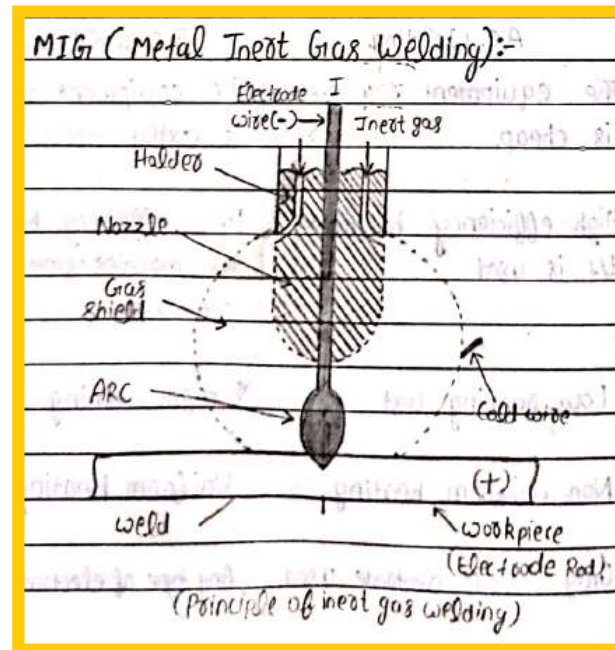 MIG (Metal Inert Gas Welding):-
I
Electrode
wire(-)
Inert gas
Halder
Nozzle
Gas
shield
ARC
Cold wire
(+)
weld
workpiece
(Electrode Rod)
(Principle of inert gas welding)